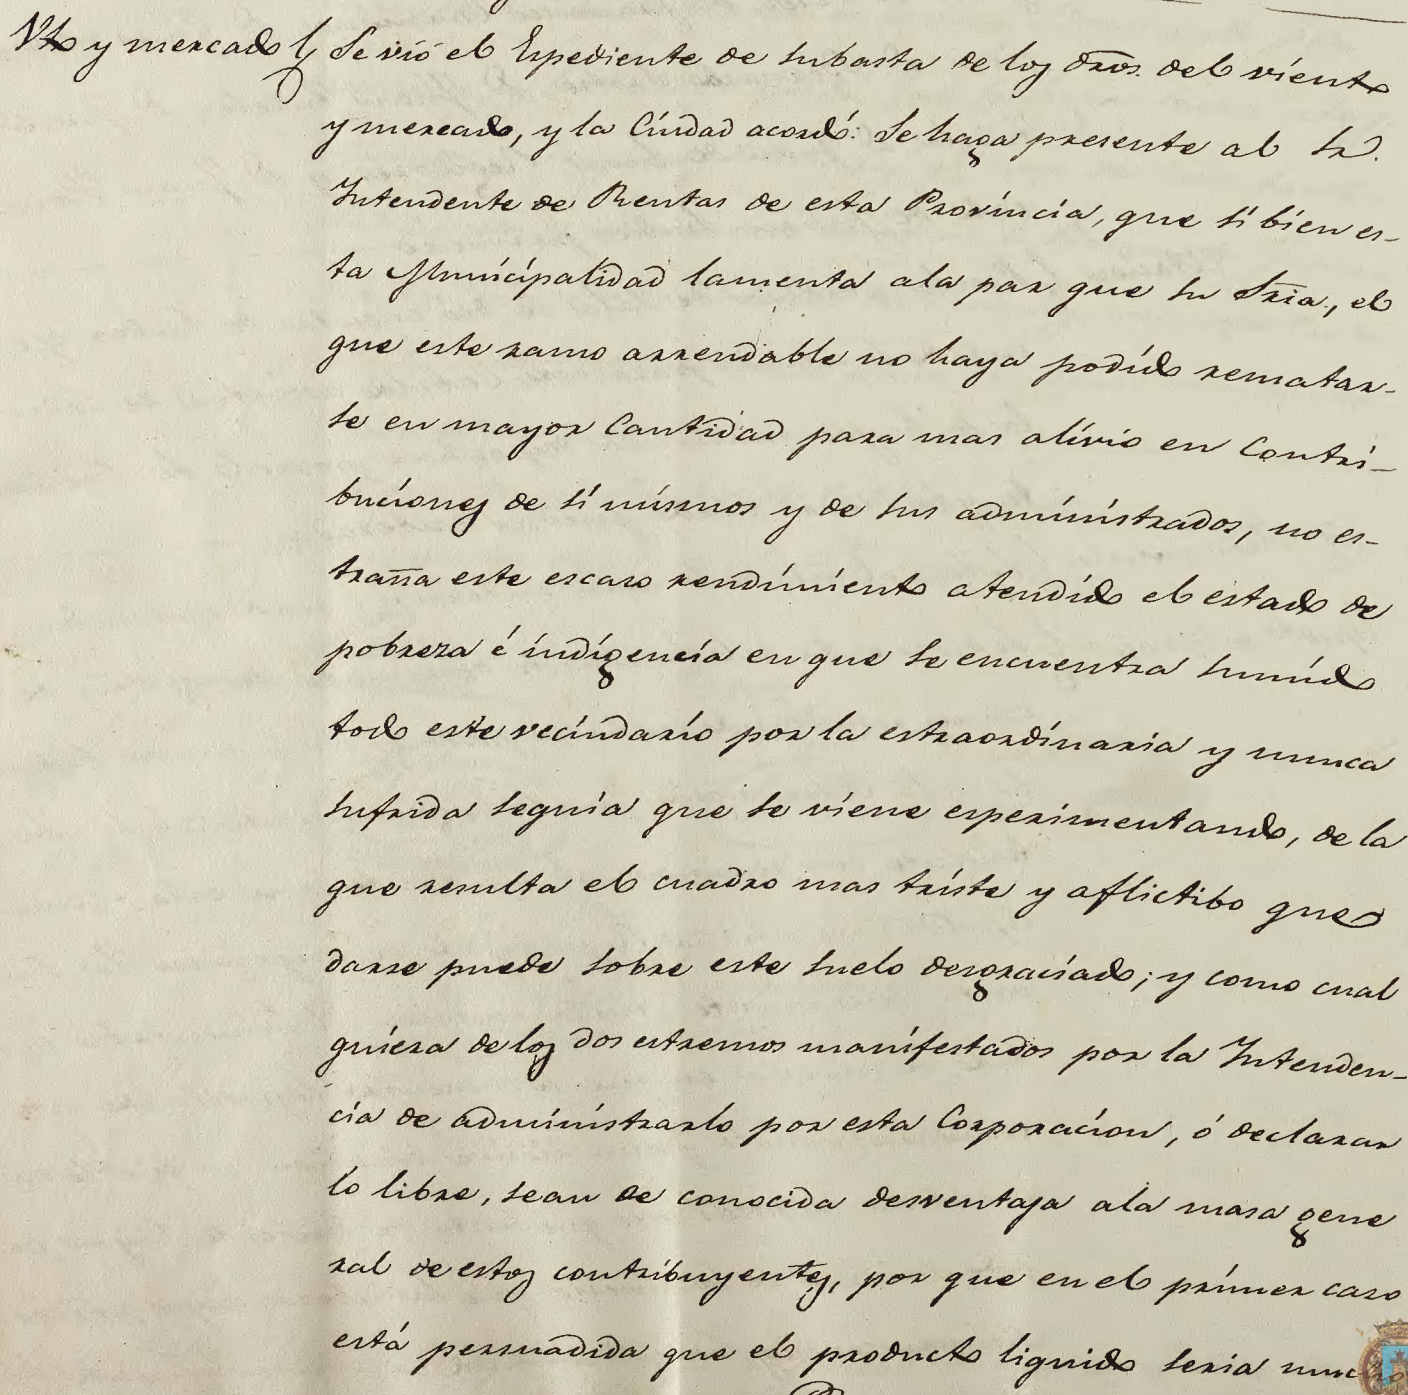 Vto y mercado
Se vió el Espediente de subasta de los dros. del viento
y mercado, y la Ciudad acordó: Se haga presente al Sr.
Intendente de Rentas de esta Provincia, que si bien es-
ta Municipalidad lamenta ala par que su Sria., el
que este ramo arrendable no haya podido rematar-
se en mayor Cantidad para mas alivio en Contri-
buciones de sí mismos y de sus administrados, no es-
traña este escaso rendimiento atendido el estado de
pobreza é indigencia en que se encuentra sumido
todo este vecindario por la estraordinaria y nunca
sufrida sequia que se viene esperimentando, de la
que resulta el cuadro mas triste y aflictibo que
darse puede sobre este suelo desgraciado; y como cual
quiera de los dos estremos manifestados por la Intenden-
cia de administrarlo por esta Corporacion, ó declarar
lo libre, sean de conocida desventaja ala masa gene
ral de estos contribuyentes, por que en el primer caso
está persuadida que el producto liquido seria